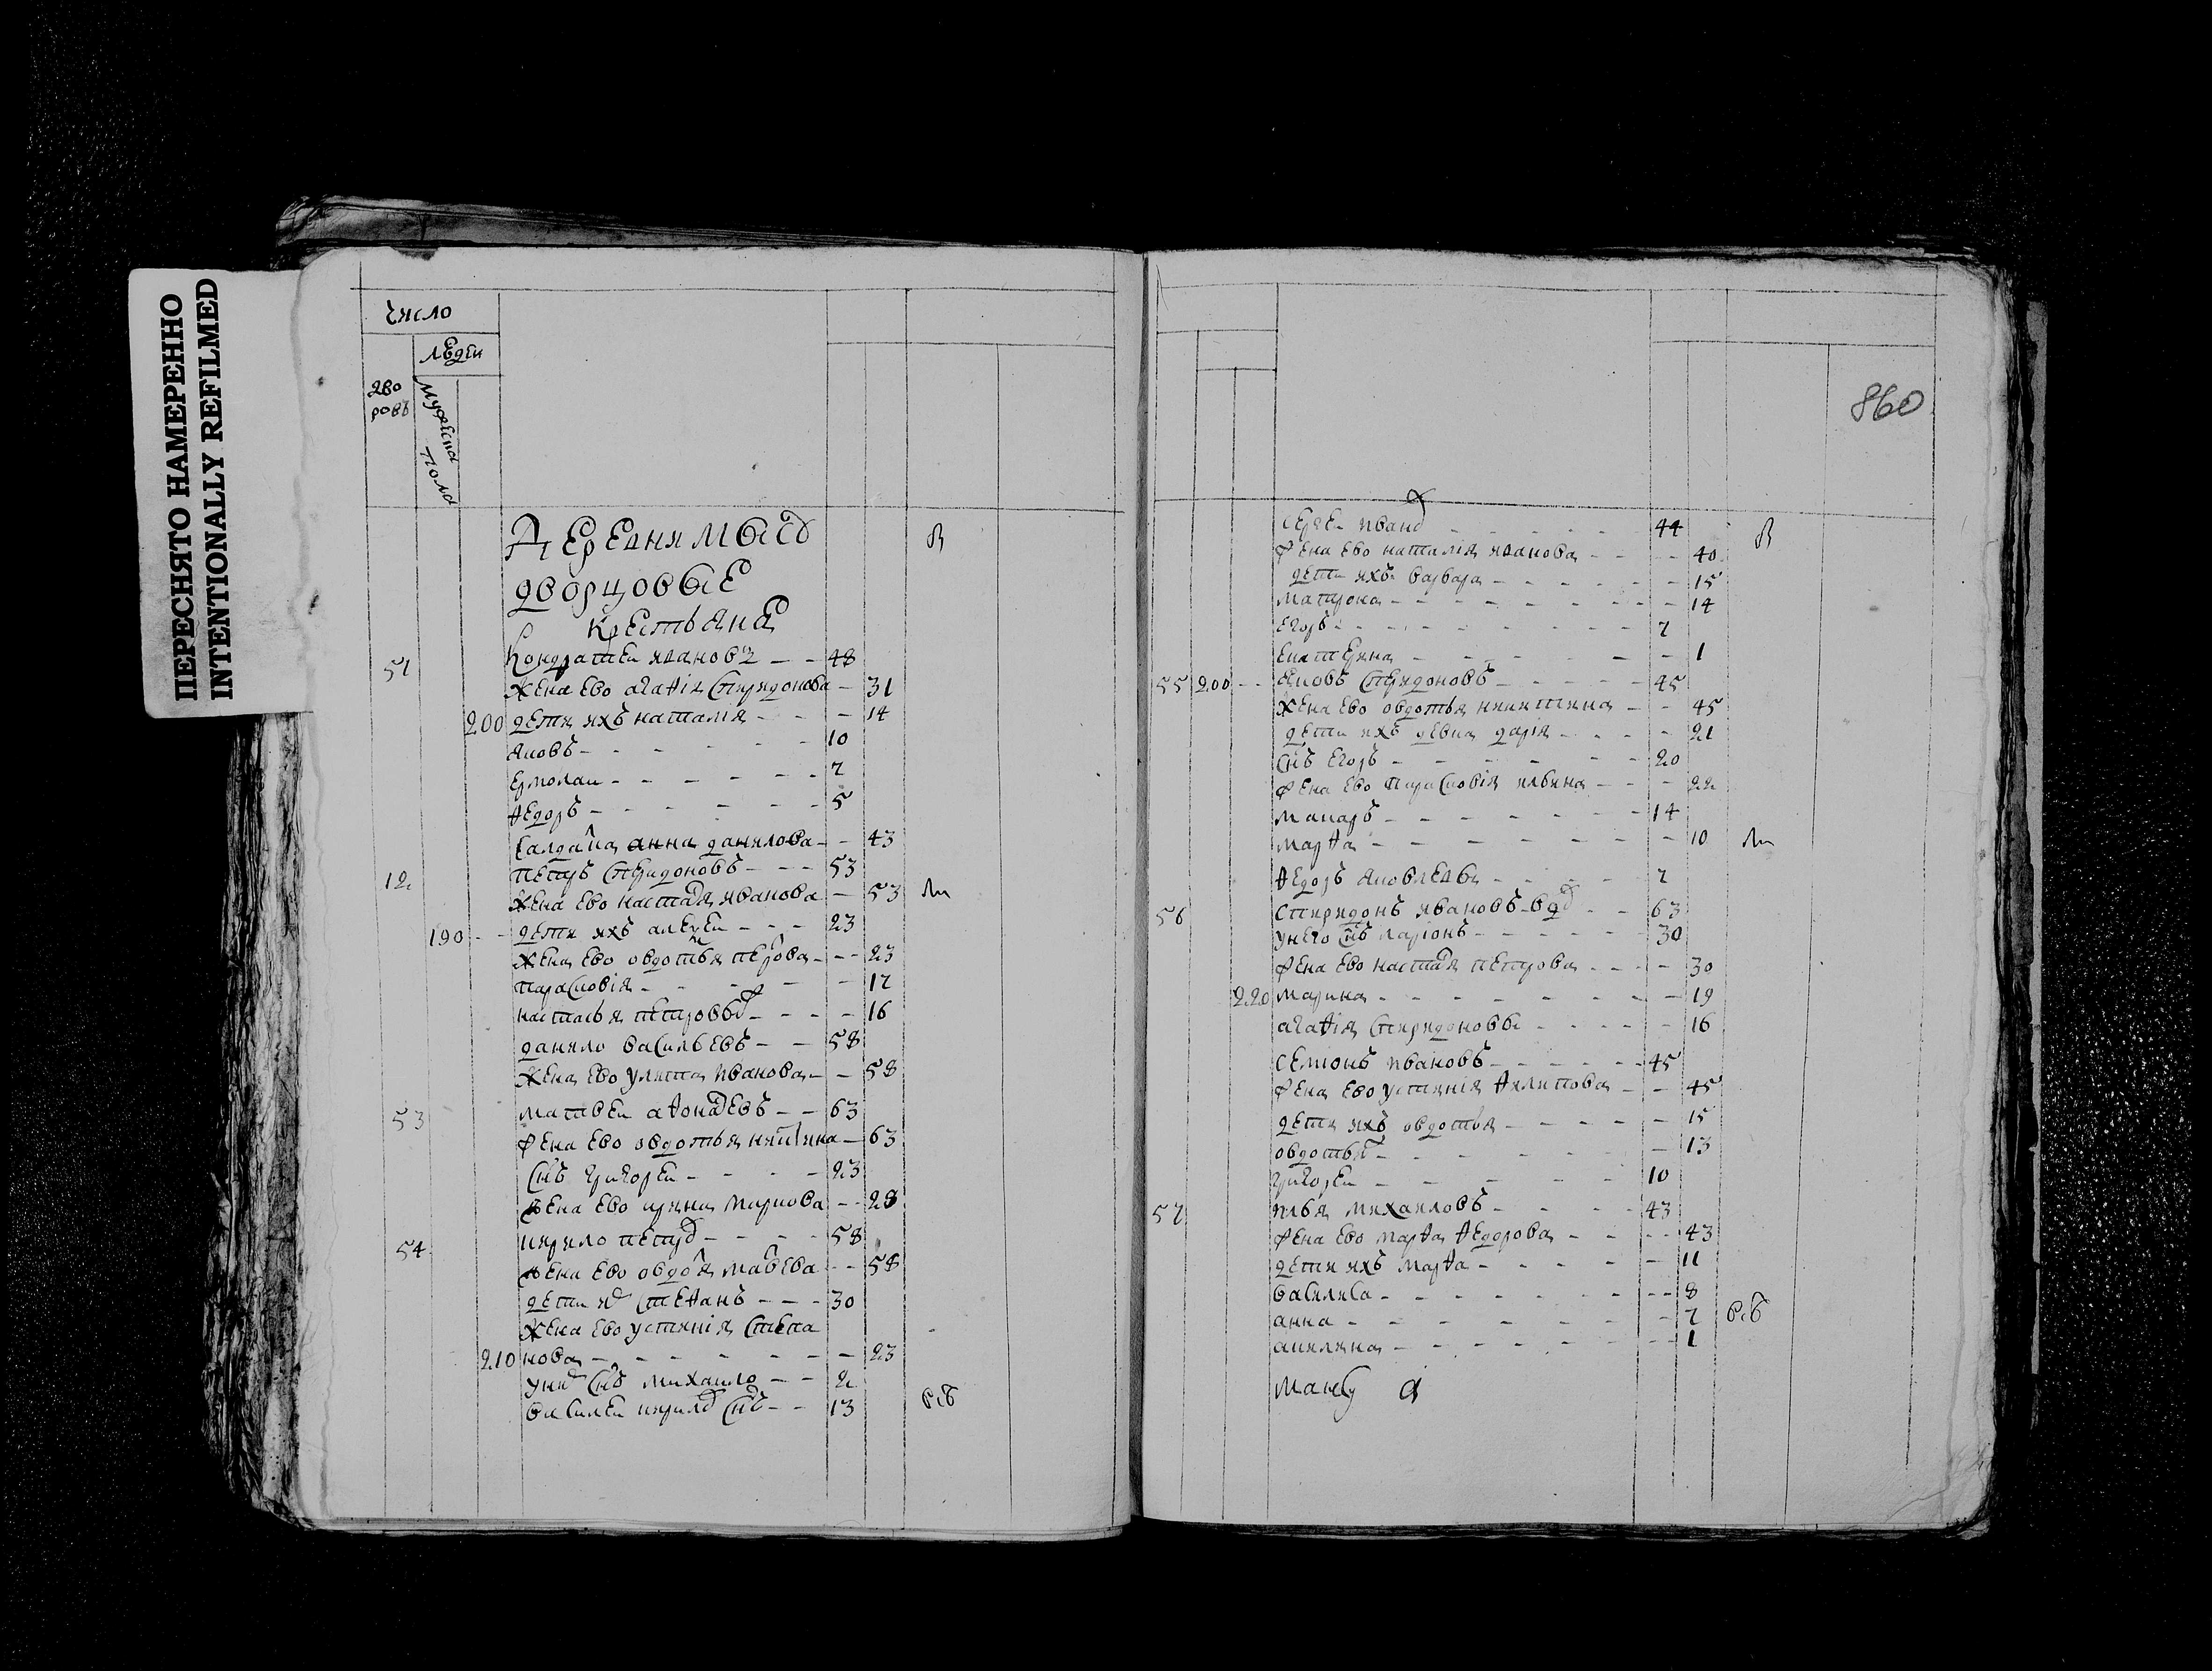 ПЕРЕСНЯТО НАМЕРЕННО
INTENTIONALLY REFILMED
число
людеи
дво
ровъ
мужеска
пола
деревня
дворцовые
крестьяня
51 кондратеи ивановъ 48
жена ево агафiя спиридонова 31
200 дети ихъ наталiя 14
яковъ 10
ермолаи 7
федоръ 5
салдатка анна данилова 43
12 петръ спиридоновъ 53
жена ево настася иванова 53
190 дети ихъ алексеи 23
жена ево овдотья петрова 23
парасковiя 17
настасья петровы 16
данило васильевъ 58
жена ево улита иванова 58
53 матвеи афонасевъ 63
жена ево овдотья никитина 63
снъ григореи 23
жена ево ирина маркова 28
54 кирило петров 58
жена ево овдотя матвеева 58
дети их стефанъ 30
жена ево устинiя степа
210 нова 23
у них снъ михаило 2
василеи кирилов снъ 13
860
сергеи иванов 44
жена ево наталiя иванова 40
дети ихъ варвара 15
матрона 14
егоръ 7
екатерина 1
55 200 яковъ спиридоновъ 45
жена ево овдотья никитина 45
дети ихъ девка дарiя 21
снъ егоръ 20
жена ево парасковiя ильина 22
макаръ 14
марфа 10
федоръ яковлевы 7
56 спиридонъ ивановъ вдов 63
у него снъ ларионъ 30
жена ево настася петрова 30
220 марина 19
агафiя спиридоновы 16
семионъ ивановъ 45
жена ево устинiя филипова 45
дети ихъ овдотья 15
овдотья 13
григореи 10
57 илья михаиловъ 43
жена ево марфа федорова 43
дети ихъ марфа 11
василиса 8
анна 7
акилина 1